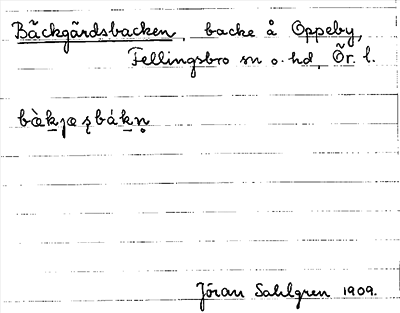 Bäckgärdsbacken, backe å Oppeby,
Fellingsbro sn o. hd, Ör. l.
bæ̀kjæʂbákn̥
Jöran Sahlgren 1909.